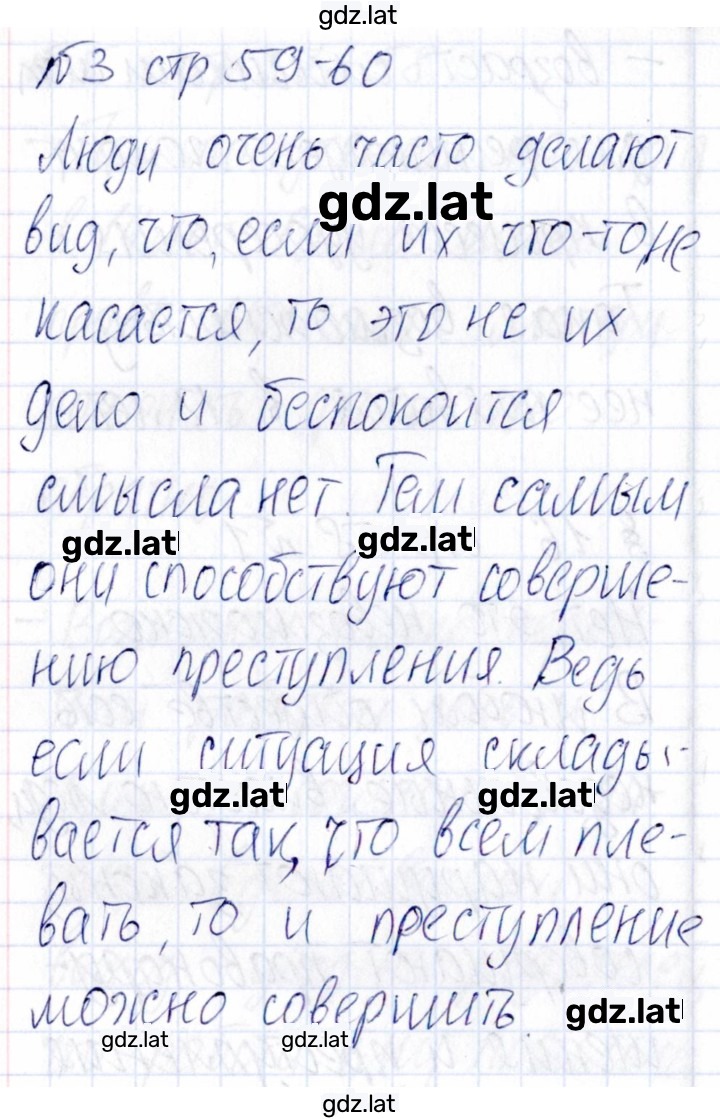 gdz.lat
№3 стр 59-60
Люди очень часто делают
gdz.lat
вид, что, если их что-то не
касается, то это не их
дело и беспокоится
смысла нет. Тем самым
gdz.lat gdz.lat
они способствуют соверше-
нию преступления. Ведь
если ситуация склады-
gdz.lat gdz.lat
вается так, что всем пле-
вать, то и преступление
можно совершить. gdz.lat
gdz.lat gdz.lat
gdz.lat